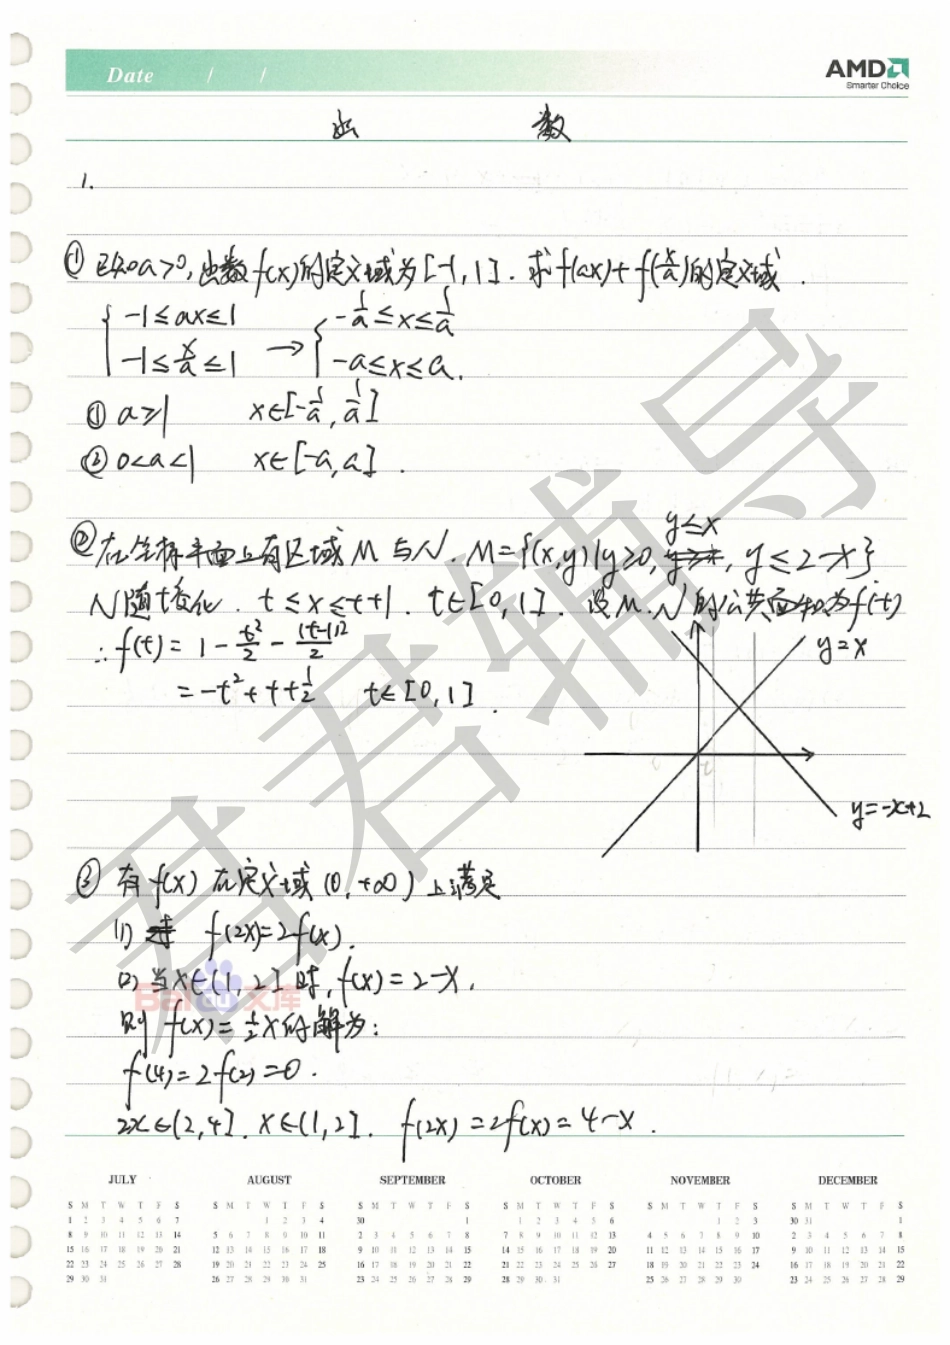 Date / /
AMD
Smarter Choice
函 数
1.
① 已知a>0,函数f(x)的定义域为[-1,1].求f(ax)+f(x/a)的定义域.
{ -1≤ax≤1 → { -1/a≤x≤1/a
-1≤x/a≤1 -a≤x≤a.
① a≥1 x∈[-1/a,1/a]
② 0<a<1 x∈[-a,a].
y≤x
② 在坐标平面上有区域M与N.M={(x,y)|y≥0, y≤2-x}
N随t变化.t≤x≤t+1.t∈[0,1].设M.N的公共面积为f(t)
∴f(t)=1-t²/2-(t-1)²/2
=-t²+t+1/2 t∈[0,1].
y=x
y=-x+2
③ 有f(x)在定义域(0,+∞)上满足
(1) f(2x)=2f(x).
(2) 当x∈(1,2]时,f(x)=2-x.
则f(x)=1/2x的解为:
f(4)=2f(2)=0.
2x∈(2,4].x∈(1,2]. f(2x)=2f(x)=4-x.
君君辅导
Baidu文库
JULY AUGUST SEPTEMBER OCTOBER NOVEMBER DECEMBER
S M T W T F S S M T W T F S S M T W T F S S M T W T F S S M T W T F S S M T W T F S
1 2 3 4 5 6 7 1 2 3 4 30 1 1 2 3 4 5 6 1 2 3 30 31 1
8 9 10 11 12 13 14 5 6 7 8 9 10 11 2 3 4 5 6 7 8 7 8 9 10 11 12 13 4 5 6 7 8 9 10 2 3 4 5 6 7 8
15 16 17 18 19 20 21 12 13 14 15 16 17 18 9 10 11 12 13 14 15 14 15 16 17 18 19 20 11 12 13 14 15 16 17 9 10 11 12 13 14 15
22 23 24 25 26 27 28 19 20 21 22 23 24 25 16 17 18 19 20 21 22 21 22 23 24 25 26 27 18 19 20 21 22 23 24 16 17 18 19 20 21 22
29 30 31 26 27 28 29 30 31 23 24 25 26 27 28 29 28 29 30 31 25 26 27 28 29 30 23 24 25 26 27 28 29